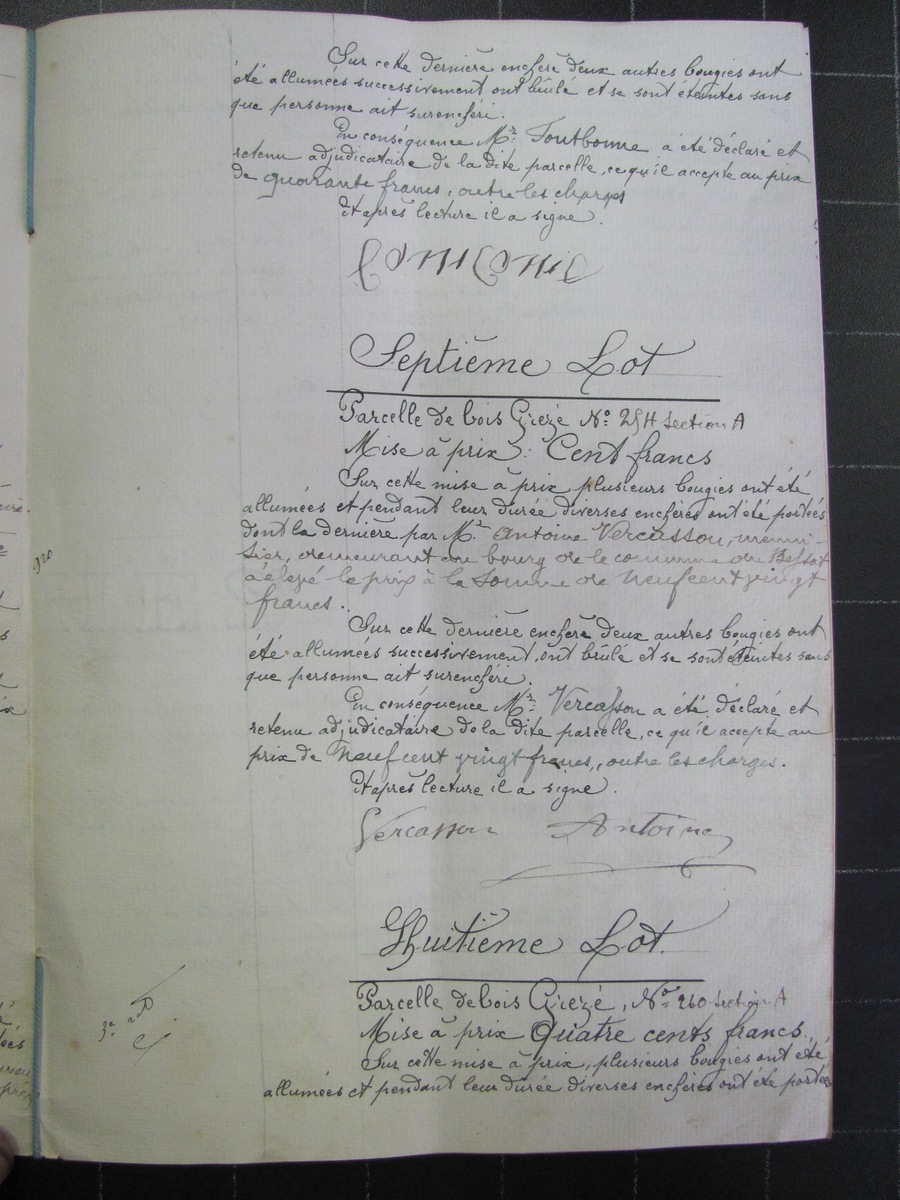 Sur cette dernière enchère deux autres bougies ont
été allumées successivement ont brûlé et se sont éteintes sans
que personne ait surenchéri.
En conséquence Mr. Fontbonne a été déclaré et
retenu adjudicataire de la dite parcelle, ce qu'il accepte au prix
de quarante francs, outre les charges
Et après lecture il a signé.
Septième Lot
Parcelle de bois Grezé No. 254 section A
Mise à prix : Cent francs
Sur cette mise à prix plusieurs bougies ont été
allumées et pendant leur durée diverses enchères ont été portées
dont la dernière par Mr. Antoine Vercasson, menui-
sier, demeurant au bourg de la commune de
a élevé le prix à la somme de neuf cent vingt
francs.
920
Sur cette dernière enchère deux autres bougies ont
été allumées successivement, ont brûlé et se sont éteintes sans
que personne ait surenchéri.
En conséquence Mr. Vercasson a été déclaré et
retenu adjudicataire de la dite parcelle, ce qu'il accepte au
prix de neuf cent vingt francs, outre les charges.
Et après lecture il a signé.
Vercasson Antoine
Huitième Lot.
Parcelle de bois Grezé, No. 260 section A
Mise à prix Quatre cents francs.
Sur cette mise à prix, plusieurs bougies ont été
allumées et pendant leur durée diverses enchères ont été portées